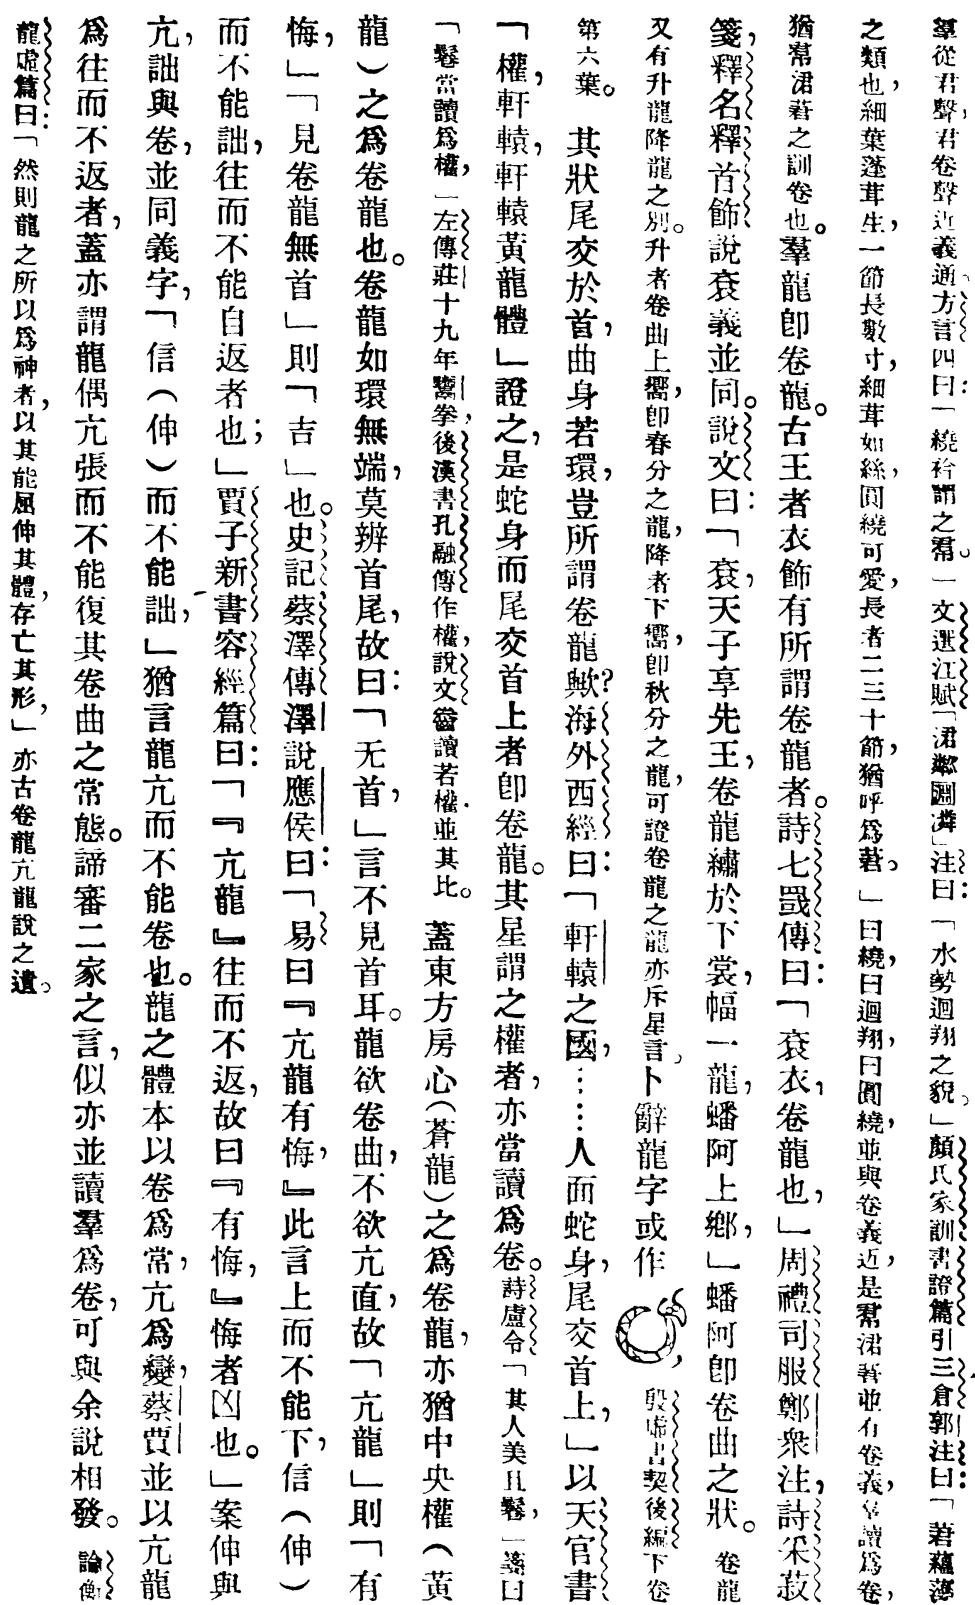 羣從君聲，君卷聲近義通。方言四曰：「繞衿謂之帬。」文選江賦「涒鄰㘤潾」注曰：「水勢迴翔之貌。」顏氏家訓書證篇引三倉郭注曰：「蕴藻
之類也，細葉蓬茸生，一節長數寸，細茸如絲，圓繞可愛，長者二三十節，猶呼爲莙。」曰繞，曰迴翔，曰圓繞，並與卷義近，是帬涒莙並有卷義，羣讀爲卷，
猶帬涒莙之訓卷也。羣龍卽卷龍。古王者衣飾有所謂卷龍者。詩七罭傳曰：「袞衣，卷龍也，」周禮司服鄭衆注，詩采菽
箋，釋名釋首飾說袞義並同。說文曰：「袞，天子享先王，卷龍繡於下裳，幅一龍，蟠阿上鄉，」蟠阿卽卷曲之狀。卷龍
又有升龍降龍之別。升者卷曲上嚮，卽春分之龍，降者下嚮，卽秋分之龍，可證卷龍之龍亦斥星言。卜辭龍字或作　，殷虛書契後編下卷
第六葉。其狀尾交於首，曲身若環，豈所謂卷龍歟？海外西經曰：「軒轅之國，……人面蛇身，尾交首上，」以天官書
「權，軒轅，軒轅黃龍體」證之，是蛇身而尾交首上者卽卷龍。其星謂之權者，亦當讀爲卷。詩盧令「其人美且鬈，」箋曰
「鬈當讀爲權，」左傳莊十九年鬻拳後漢書孔融傳作權，說文䚩讀若權，並其比。蓋東方房心（蒼龍）之爲卷龍，亦猶中央權（黃
龍）之爲卷龍也。卷龍如環無端，莫辨首尾，故曰：「无首，」言不見首耳。龍欲卷曲，不欲亢直，故「亢龍」則「有
悔，」「見卷龍無首」則「吉」也。史記蔡澤傳澤說應侯曰：「易曰『亢龍有悔，』此言上而不能下，信（伸）
而不能詘，往而不能自返者也；」賈子新書容經篇曰：「『亢龍』往而不返，故曰『有悔，』悔者凶也。」案伸與
亢，詘與卷，並同義字，「信（伸）而不能詘，」猶言龍亢而不能卷也。龍之體本以卷爲常，亢爲變，蔡賈並以亢龍
爲往而不返者，蓋亦謂龍偶亢張而不能復其卷曲之常態。諦審二家之言，似亦並讀羣爲卷，可與余說相發。論衡
龍虛篇曰：「然則龍之所以爲神者，以其能屈伸其體，存亡其形，」亦古卷龍亢龍說之遺。